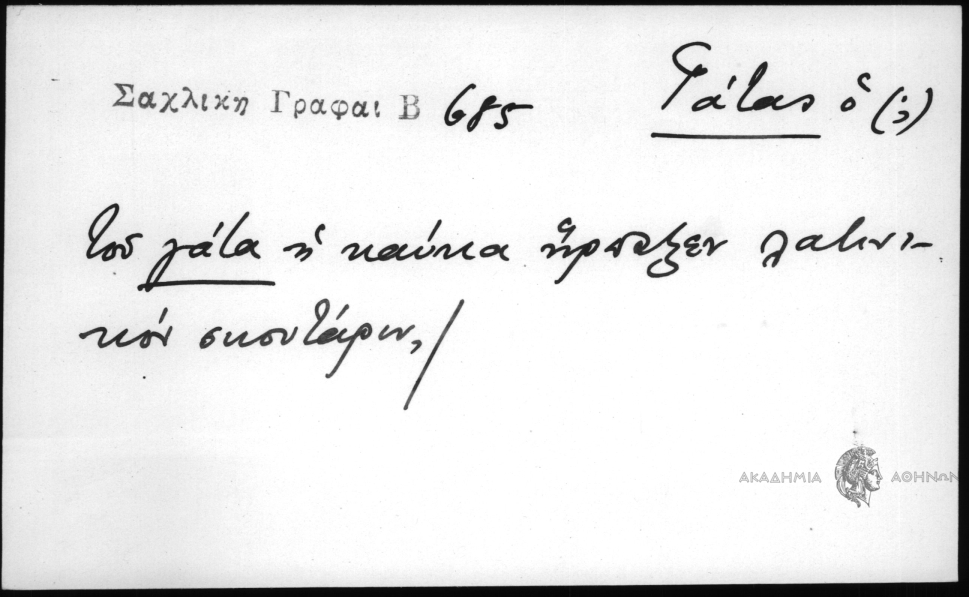 Σαχλικη Γραφαι Β 685
Γάτας ὁ (;)
τοῦ γάτα ἡ καύκα ἥρπαξεν λατινι-
κόν σκουτάριν,/
ΑΚΑΔΗΜΙΑ ΑΘΗΝΩΝ